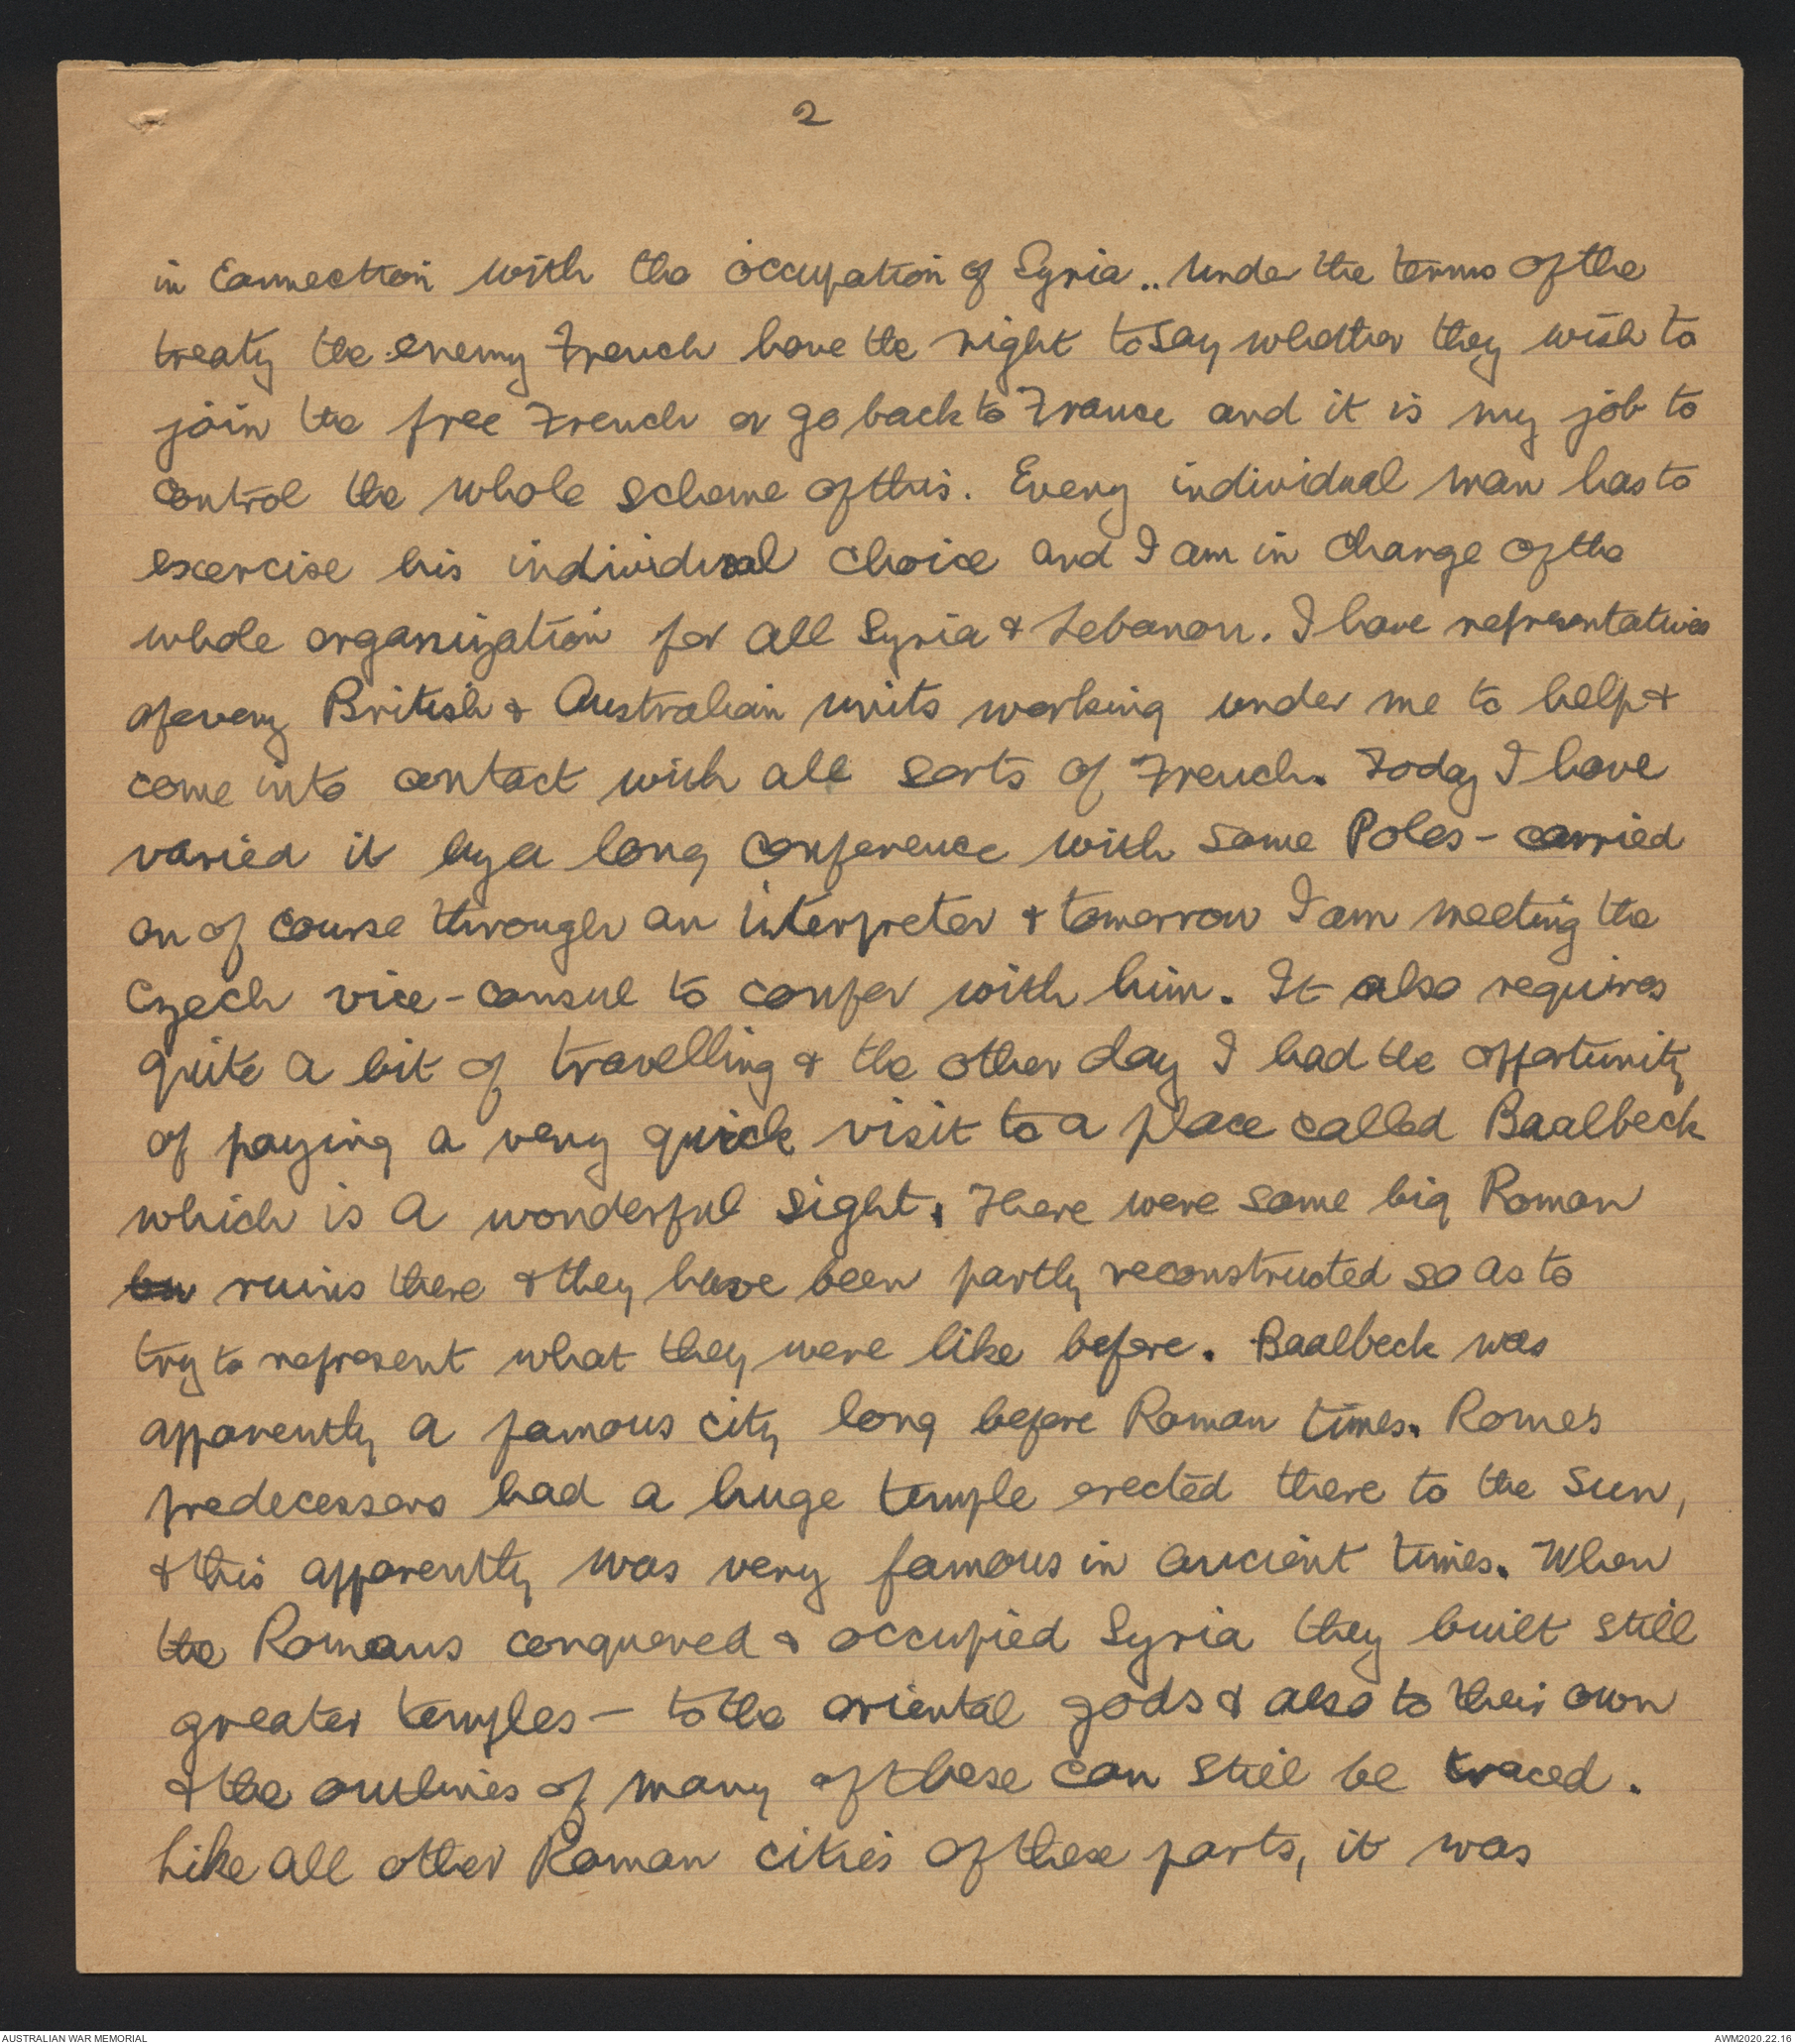 2
in connection with the occupation of Syria.. Under the terms of the
treaty the enemy French have the right to say whether they wish to
join the free French or go back to France and it is my job to
control the whole scheme of this. Every individual man has to
exercise his individual choice and I am in charge of the
whole organization for all Syria & Lebanon. I have representatives
of every British & Australian units working under me to help &
come into contact with all sorts of French. Today I have
varied it by a long conference with some Poles - carried
on of course through an interpreter & tomorrow I am meeting the
Czech vice-consul to confer with him. It also requires
quite a bit of travelling & the other day I had the opportunity
of paying a very quick visit to a place called Baalbeck
which is a wonderful sight. There were some big Roman
ruins there & they have been partly reconstructed so as to
try to represent what they were like before. Baalbeck was
apparently a famous city long before Roman times. Rome's
predecessors had a huge temple erected there to the sun,
& this apparently was very famous in ancient times. When
the Romans conquered & occupied Syria they built still
greater temples - to the oriental gods & also to their own
& the outlines of many of these can still be traced.
Like all other Roman cities of these parts, it was
AUSTRALIAN WAR MEMORIAL
AWM2020.22.16